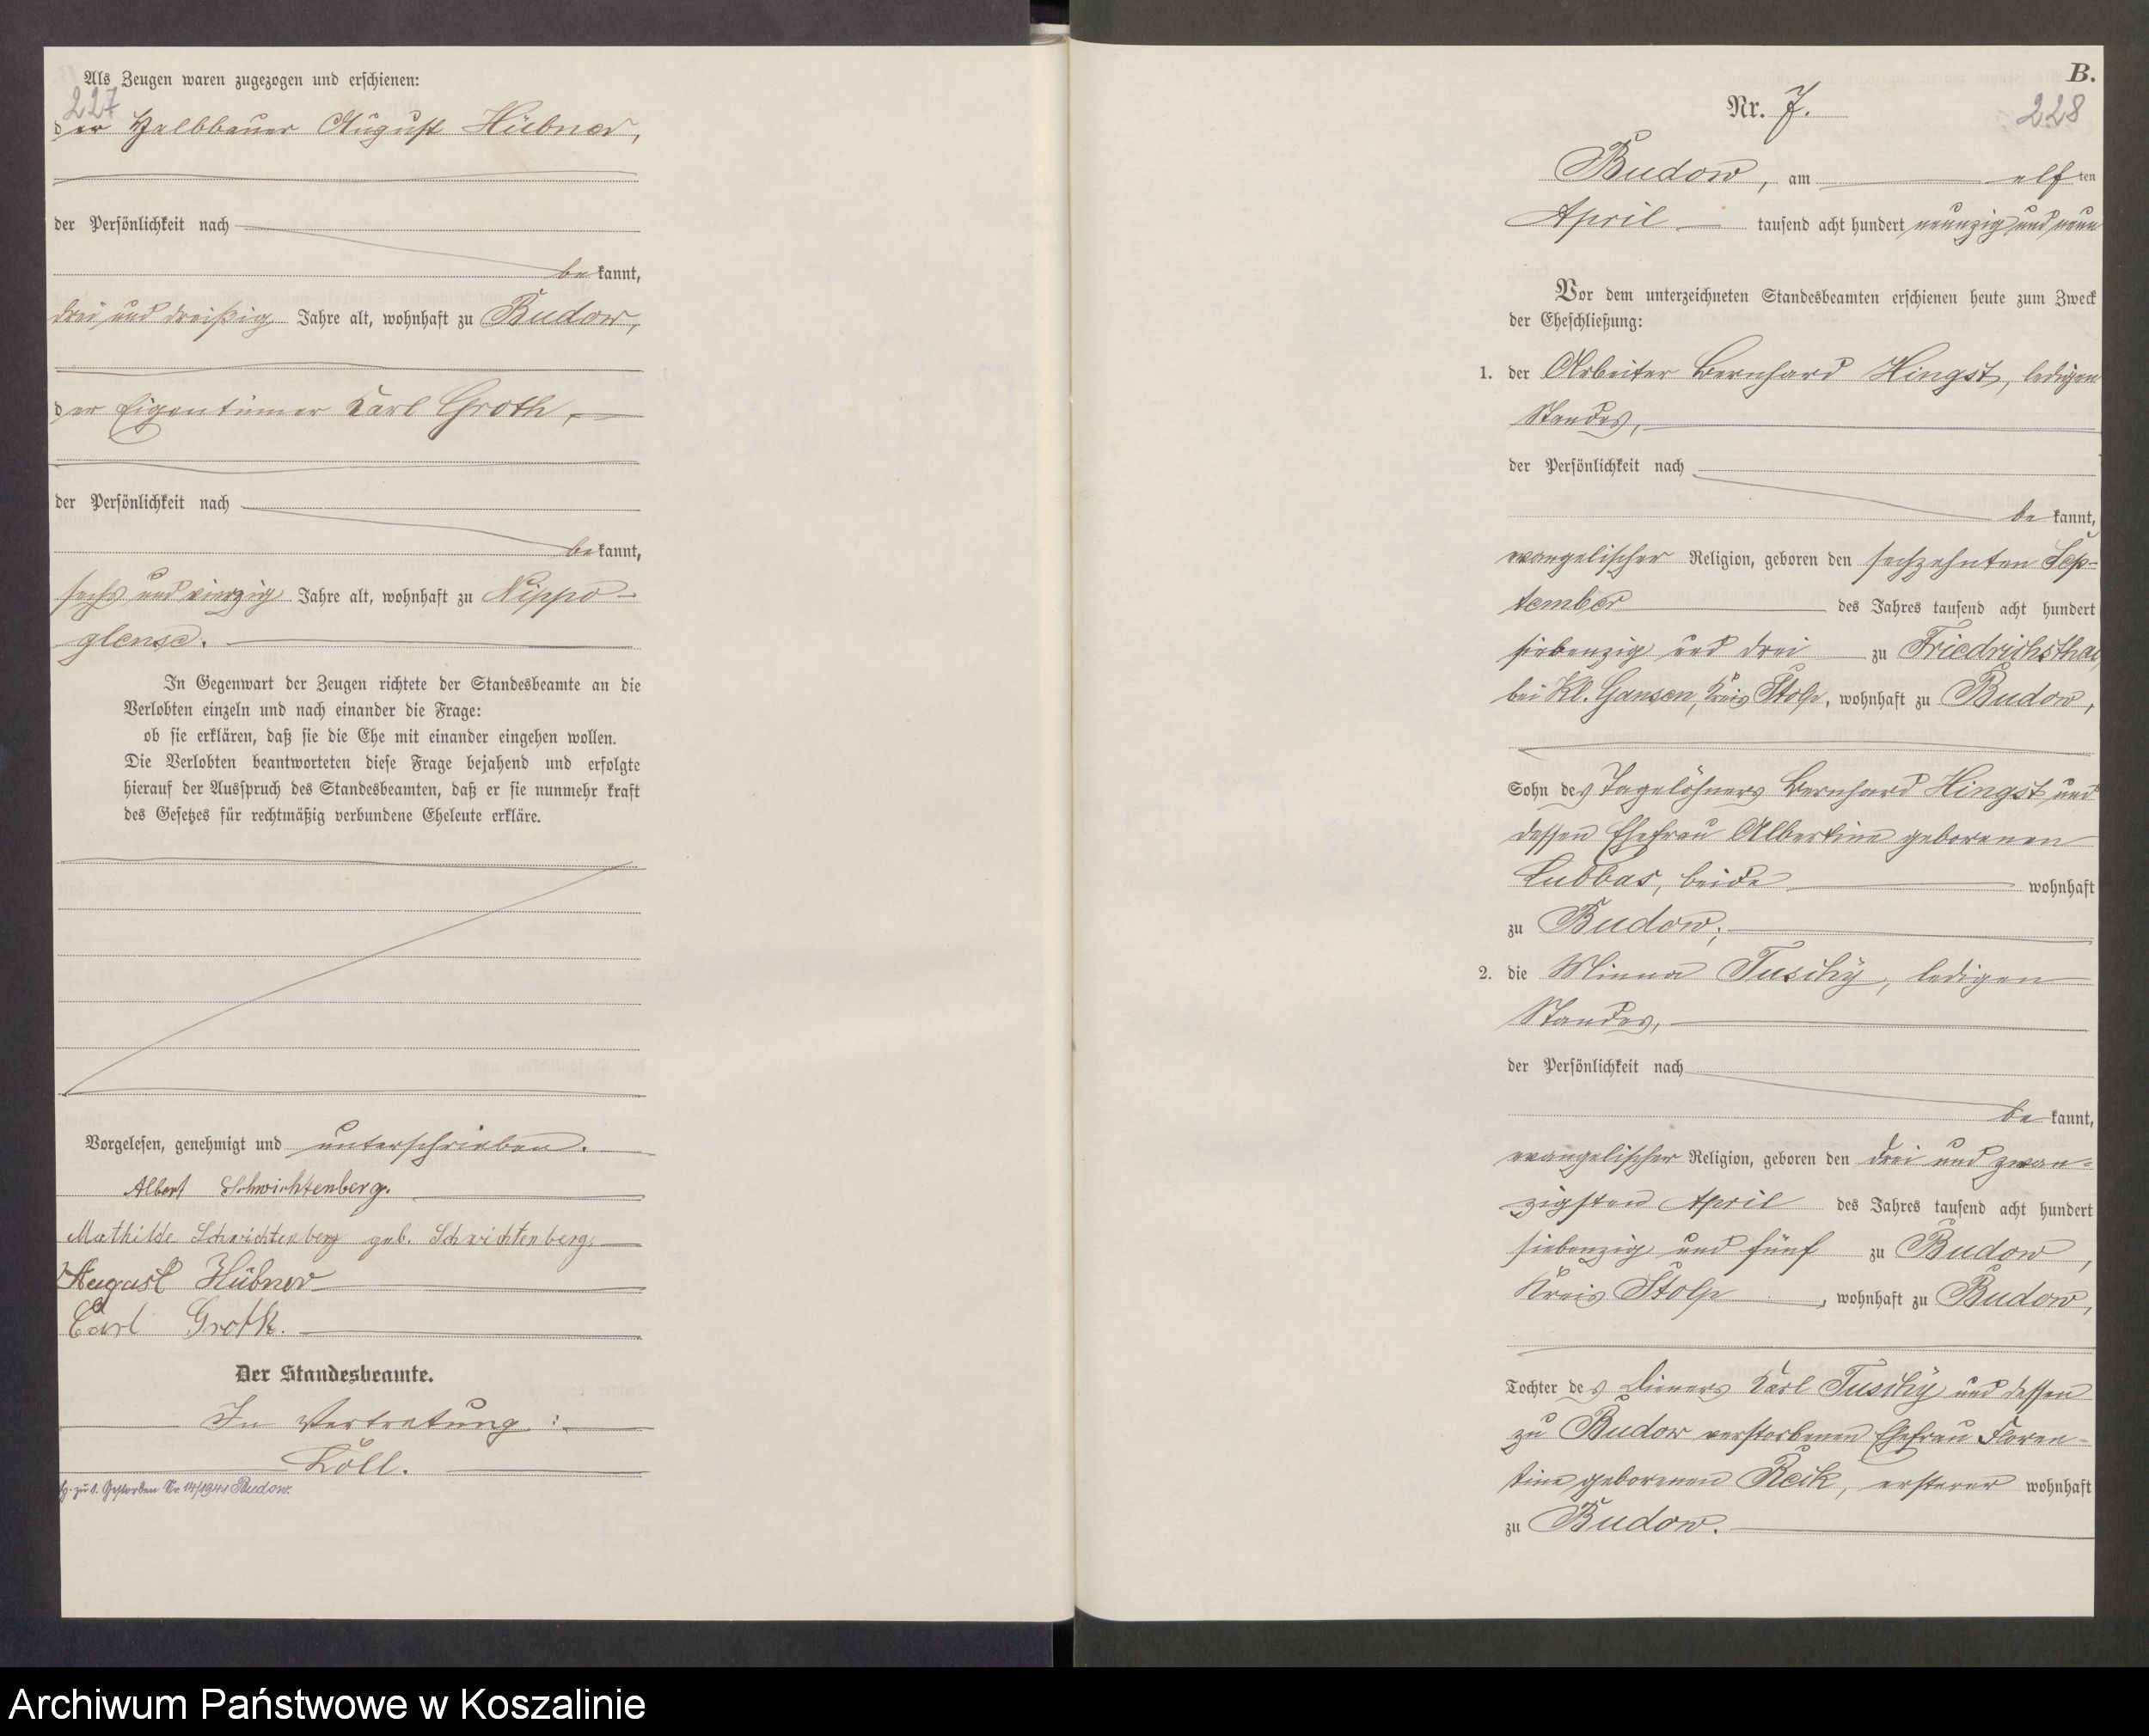 Als Zeugen waren zugezogen und erschienen:
227
der Halbbauer August Hübner,
der Persönlichkeit nach
bekannt,
drei und dreißig Jahre alt, wohnhaft zu Budow,
der Eigentümer Karl Groth,
der Persönlichkeit nach
bekannt,
sechs und vierzig Jahre alt, wohnhaft zu Nippo-
glense.
In Gegenwart der Zeugen richtete der Standesbeamte an die
Verlobten einzeln und nach einander die Frage:
ob sie erklären, daß sie die Ehe mit einander eingehen wollen.
Die Verlobten beantworteten diese Frage bejahend und erfolgte
hierauf der Ausspruch des Standesbeamten, daß er sie nunmehr kraft
des Gesetzes für rechtmäßig verbundene Eheleute erkläre.
Vorgelesen, genehmigt und unterschrieben.
Albert Schwichtenberg.
Mathilde Schwichtenberg geb. Schwichtenberg.
August Hübner
Carl Groth.
Der Standesbeamte.
In Vertretung:
Köll.
zu 1. Gestorben Nr. 14/1941 Budow.
B.
Nr. 7.
228
Budow, am elften
April tausend acht hundert neunzig und neun
Vor dem unterzeichneten Standesbeamten erschienen heute zum Zweck
der Eheschließung:
1. der Arbeiter Bernhard Hingst, ledigen
Standes,
der Persönlichkeit nach
bekannt,
evangelischer Religion, geboren den sechzehnten Sep-
tember des Jahres tausend acht hundert
siebenzig und drei zu Friedrichsthal
bei Kl. Gansen, Kreis Stolp, wohnhaft zu Budow,
Sohn des Tagelöhners Bernhard Hingst und
dessen Ehefrau Albertine geborenen
Lubbas, beide wohnhaft
zu Budow;
2. die Minna Tuschÿ, ledigen
Standes,
der Persönlichkeit nach
bekannt,
evangelischer Religion, geboren den drei und zwan-
zigsten April des Jahres tausend acht hundert
siebenzig und fünf zu Budow,
Kreis Stolp, wohnhaft zu Budow,
Tochter des Dieners Karl Tuschÿ und dessen
zu Budow verstorbenen Ehefrau Floren-
tine geborenen Reik, ersterer wohnhaft
zu Budow.
Archiwum Państwowe w Koszalinie